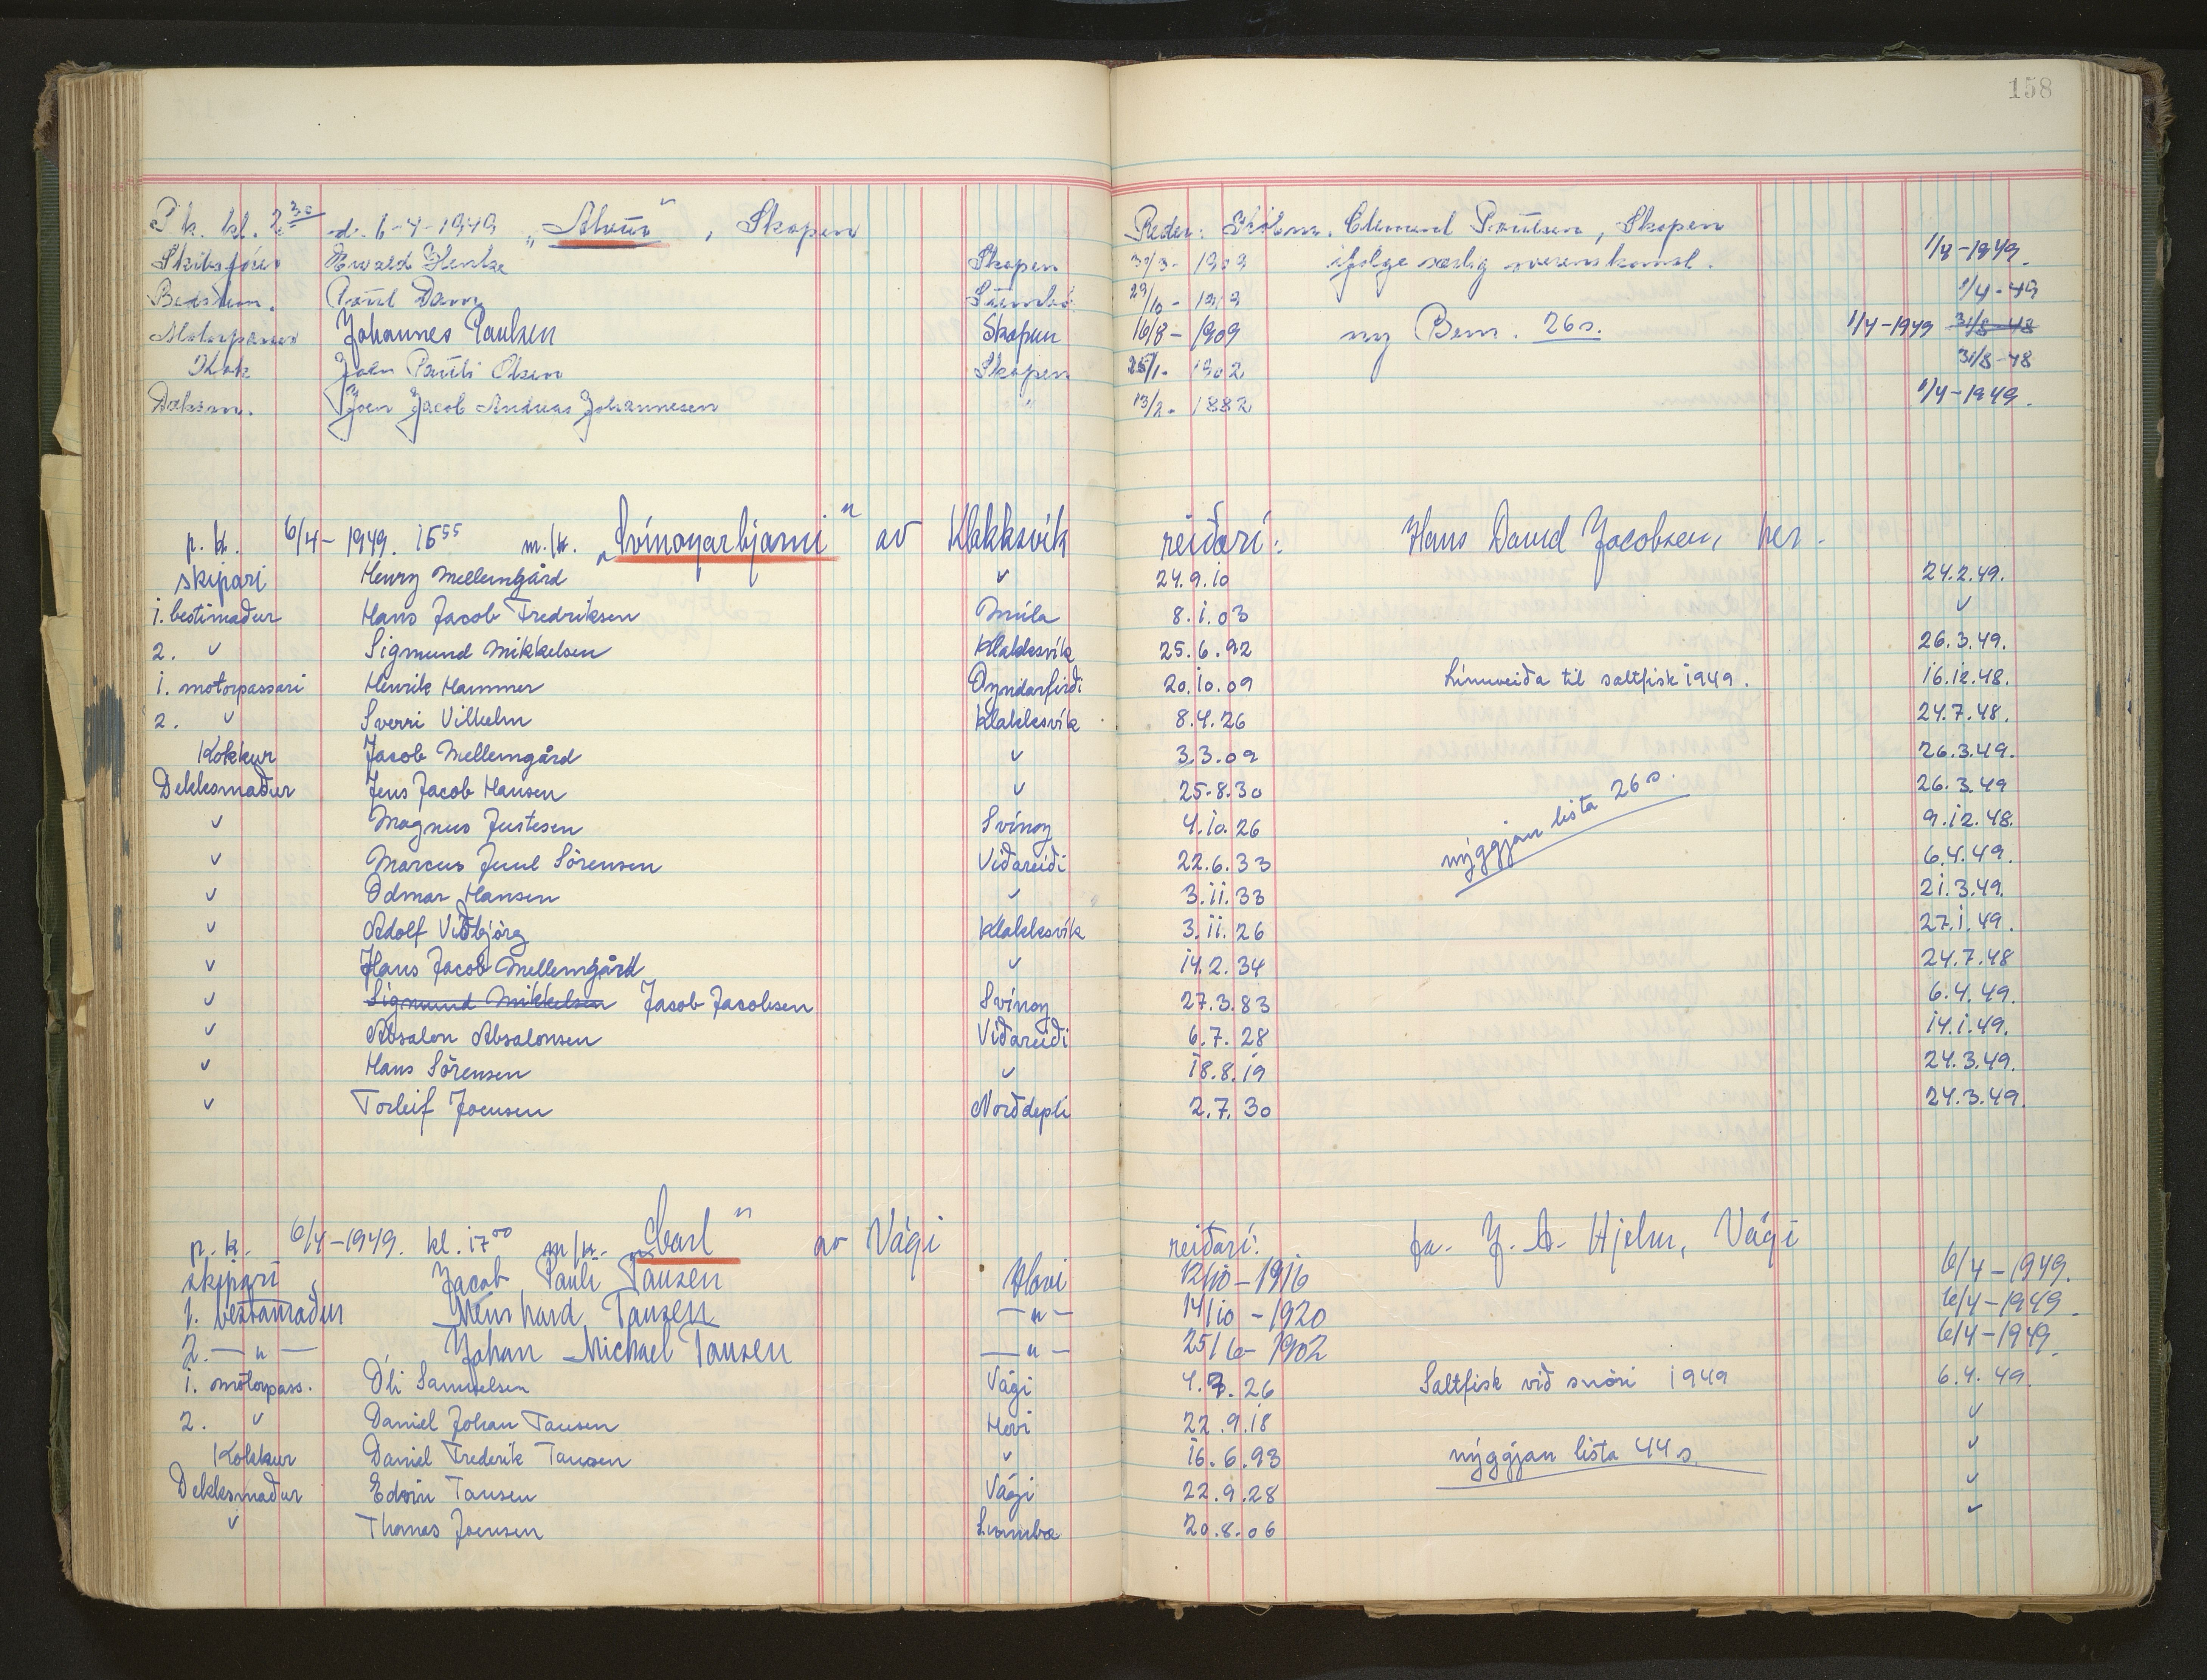 158
P. k. kl. 2 30 d. 6-4-1949 , Skopen Reder: Edmund Poulsen, Skopen
Skibsfører Ewald Skopen 30/3- 1909 ifølge særlig overenskomst. 1/4-1949.
Bedstem. Poul 1/4-49
Motorpasser Johannes Paulsen Skopun 16/8- 1909 ny Bem. 26 s. 1/4-1949 31/8-48
Kok Joen Pauli Olsen Skopen 1902 31/8-48
Dæksm. Joen Jacob Andreas Johannesen " 13/2- 1882 1/4-1949.
p. k. 6/4- 1949. 16 55 m./k. „Svínoyarbjarni" av Klakksvík reiðari: Hans David Jacobsen, her.
skipari Henry Mellemgård ✓ 24.9.10 24.2.49.
1. bestimaður Hans Jacob Fredriksen Múla 8.1.03 ✓
2. ✓ Sigmund Mikkelsen Klakksvík 25.6.92 26.3.49.
1. motorpassari Henrik Hammer Oyndarfirði 20.10.09 Línuveiða til saltfisk 1949. 16.12.48.
2. ✓ Sverri Vilhelm Klakksvík 8.4.26 24.7.48.
Kokkur Jacob Mellemgård ✓ 3.3.09 26.3.49.
Dekksmaður Jens Jacob Hansen ✓ 25.8.30 nýggjan lista 26 s. 26.3.49
✓ Magnus Justesen Svínoy 4.10.26 9.12.48.
✓ Marcus Juul Sörensen Viðareiði 22.6.33 6.4.49.
✓ Odmar Hansen ✓ 3.11.33 21.3.49.
✓ Adolf Viðbjörg Klakksvík 3.11.26 27.1.49.
✓ Hans Jacob Mellemgård ✓ 14.2.34 24.7.48
✓ Sigmund Mikkelsen Jacob Jacobsen Svínoy 27.3.83 6.4.49.
✓ Absalon Absalonsen Viðareiði 6.7.28 14.1.49.
✓ Hans Sörensen ✓ 18.8.19 24.3.49.
✓ Torleif Joensen Norðdepli 2.7.30 24.3.49.
p. k. 6/4-1949. kl. 17 00 m/k. „Carl" av Vági reiðari: fa. J. A. Hjelm, Vági
skipari Jacob Pauli Tausen Hovi 12/10-1916 6/4-1949.
1. bestamaður Meinhard Tausen —"— 14/10-1920 6/4-1949.
2. —"— Johan Michael Tausen —"— 25/6-1902 6/4-1949.
1. motorpass. Óli Samuelsen Vági 26 Saltfisk við snöri 1949 6.4.49.
2. ✓ Daniel Johan Tausen Hovi 22.9.18 ✓
Kokkur Daniel Frederik Tausen ✓ 16.6.93 nýggjan lista 44 s. ✓
Dekksmaður Edvin Tausen Vági 22.9.28 ✓
✓ Thomas Joensen Sumba 20.8.06 ✓